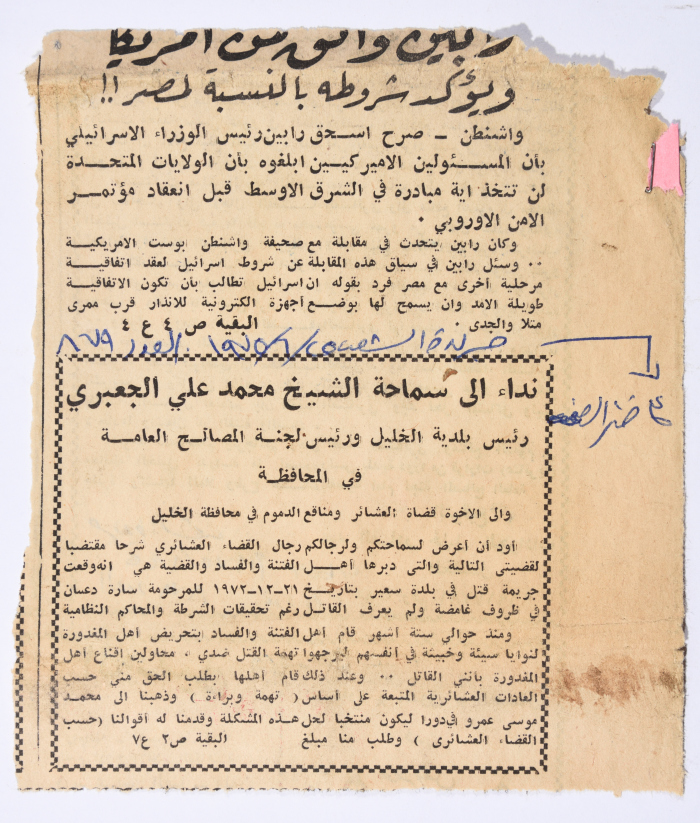 رابين واثق من امريكا
ويؤكد شروطه بالنسبة لمصر !!
واشنطن – صرح اسحق رابين رئيس الوزراء الاسرائيلي
بأن المسئولين الاميركيين ابلغوه بأن الولايات المتحدة
لن تتخذ اية مبادرة في الشرق الاوسط قبل انعقاد مؤتمر
الامن الاوروبي .
وكان رابين يتحدث في مقابلة مع صحيفة واشنطن بوست الامريكية
.. وسئل رابين في سياق هذه المقابلة عن شروط اسرائيل لعقد اتفاقية
مرحلية أخرى مع مصر فرد بقوله ان اسرائيل تطالب بأن تكون الاتفاقية
طويلة الامد وان يسمح لها بوضع أجهزة الكترونية للانذار قرب ممرى
متلا والجدى . البقية ص ٤ ع ٤
جريدة الشعب العدد ٨٦٧٩
نداء الى سماحة الشيخ محمد علي الجعبري
رئيس بلدية الخليل ورئيس لجنة المصالح العامة
في المحافظة
والى الاخوة قضاة العشائر ومناقع الدموم في محافظة الخليل
أود أن أعرض لسماحتكم ولرجالكم رجال القضاء العشائري شرحا مقتضبا
لقضيتى التالية والتى دبرها أهل الفتنة والفساد والقضية هي انه وقعت
جريمة قتل في بلدة سعير بتاريخ ٢١-١٢-١٩٧٢ للمرحومة سارة دعسان
في ظروف غامضة ولم يعرف القاتل رغم تحقيقات الشرطة والمحاكم النظامية
ومنذ حوالي ستة أشهر قام أهل الفتنة والفساد بتحريض أهل المغدورة
لنوايا سيئة وخبيثة في انفسهم ليوجهوا تهمة القتل ضدي ، محاولين اقناع أهل
المغدورة بأننى القاتل .. وعند ذلك قام أهلها بطلب الحق منى حسب
العادات العشائرية المتبعة على أساس ( تهمة وبراءة ) وذهبنا الى محمد
موسى عمرو في دورا ليكون منتخبا لحل هذه المشكلة وقدمنا له أقوالنا ( حسب
القضاء العشائرى ) وطلب منا مبلغ البقية ص ٢ ع ٧